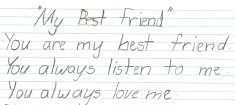 "My Best Friend"
You are my best friend
You always listen to me
You always love me